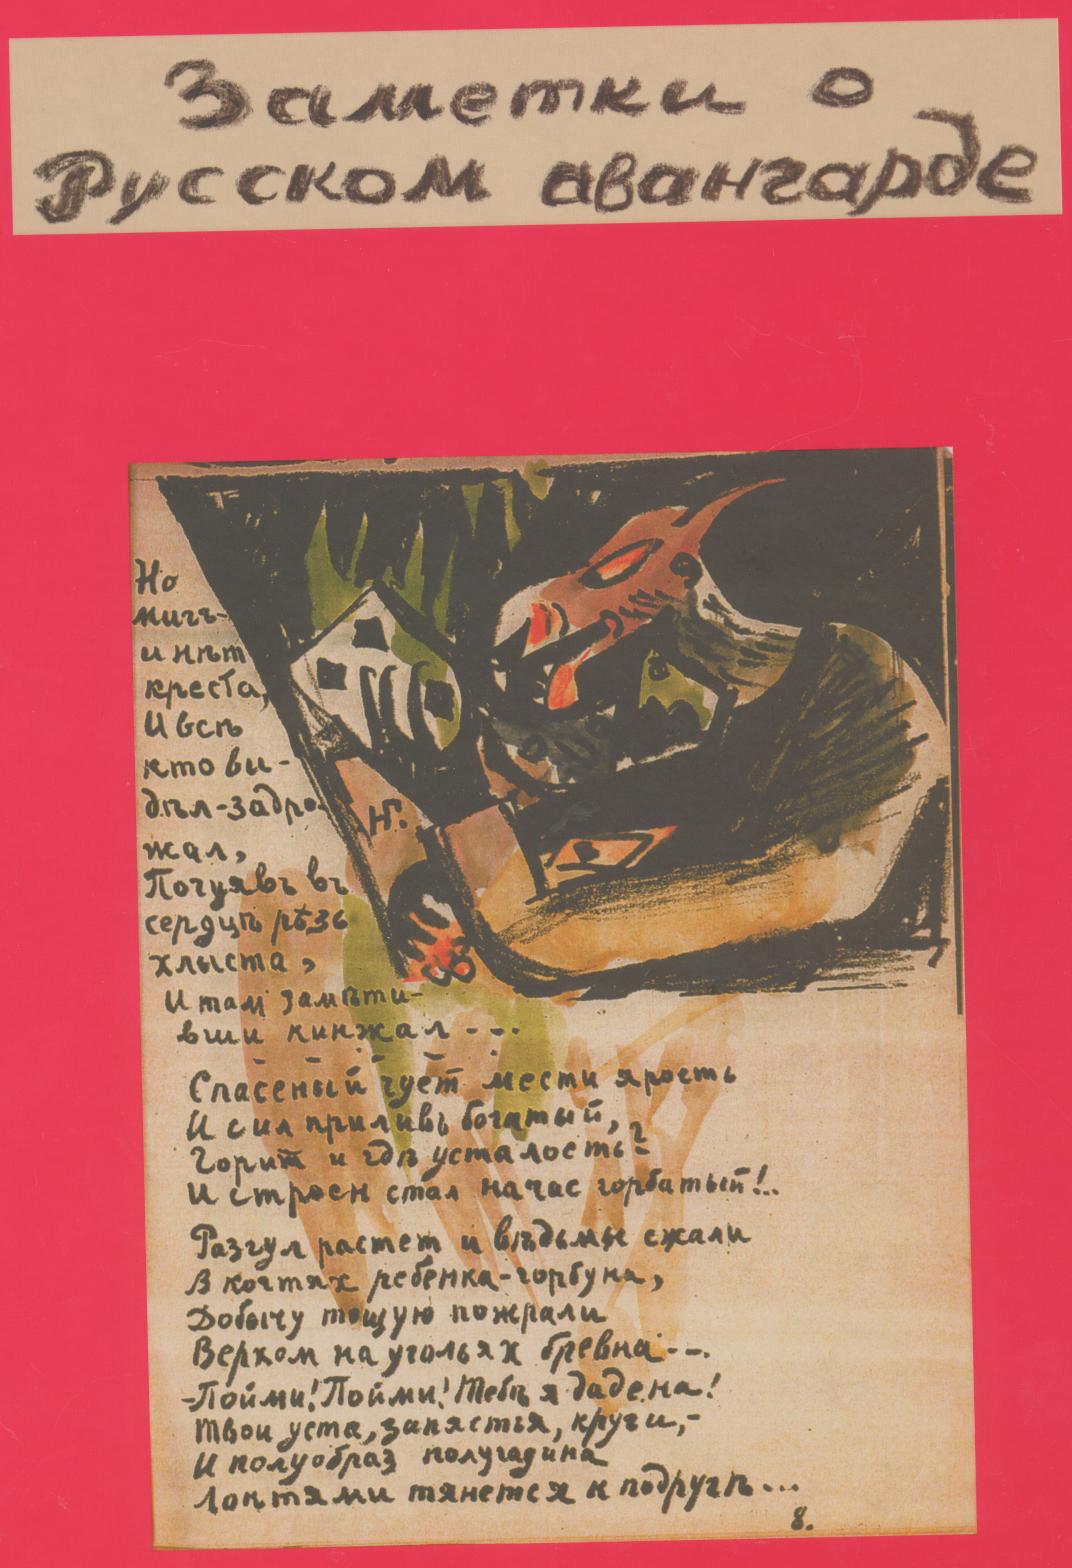 Заметки о
Русском авангарде
Но
мигъ-
и нѣт
креста,
И всѣ
кто ви-
дѣл-задро-
жал,
Почуявъ въ
сердцѣ рѣзь
хлыста,
И там замѣти-
вши кинжал---
Н.
Спасеный чует мести ярость
И сил приливъ богатый,
Горит и гдѣ усталость-?
И строен стал начас горбатый!..
Разгул растет и вѣдьмы сжали
В когтях ребенка-горбуна,
Добычу тощую пожрали
Верхом на угольях бревна--.
-Пойми! Пойми! Тебѣ я дадена!
Твои уста, запястья, круги,-
И полуобраз полугадина
Локтями тянется к подругѣ...
8.